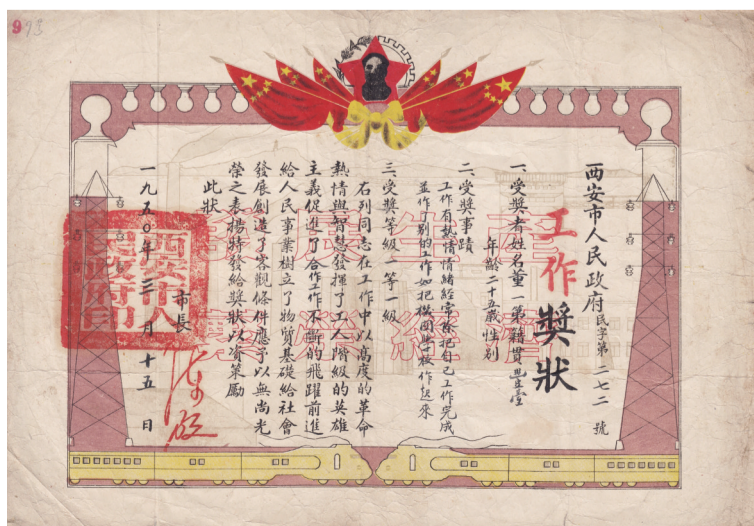 993
西安市人民政府 民字第二七二號
工作獎狀
一、受獎者姓名董一第籍貫
年齡二十五歲性别
二、受獎事蹟
工作有熱情情緒經常除把自己工作完成
並作了别的工作如把機関學校作起來
三、受獎等級 一等一級
右列同志在工作中以高度的革命
熱情與智慧發揮了工人階級的英雄
主義促進了合作工作不斷的飛躍前進
給人民事業樹立了物質基礎給社會
發展創造了客觀條件應予以無尚光
榮之表揚特發給獎狀以資策勵
此狀
市長
一九五〇年三月十五日
發展生產
繁榮經濟
西安市人民政府印